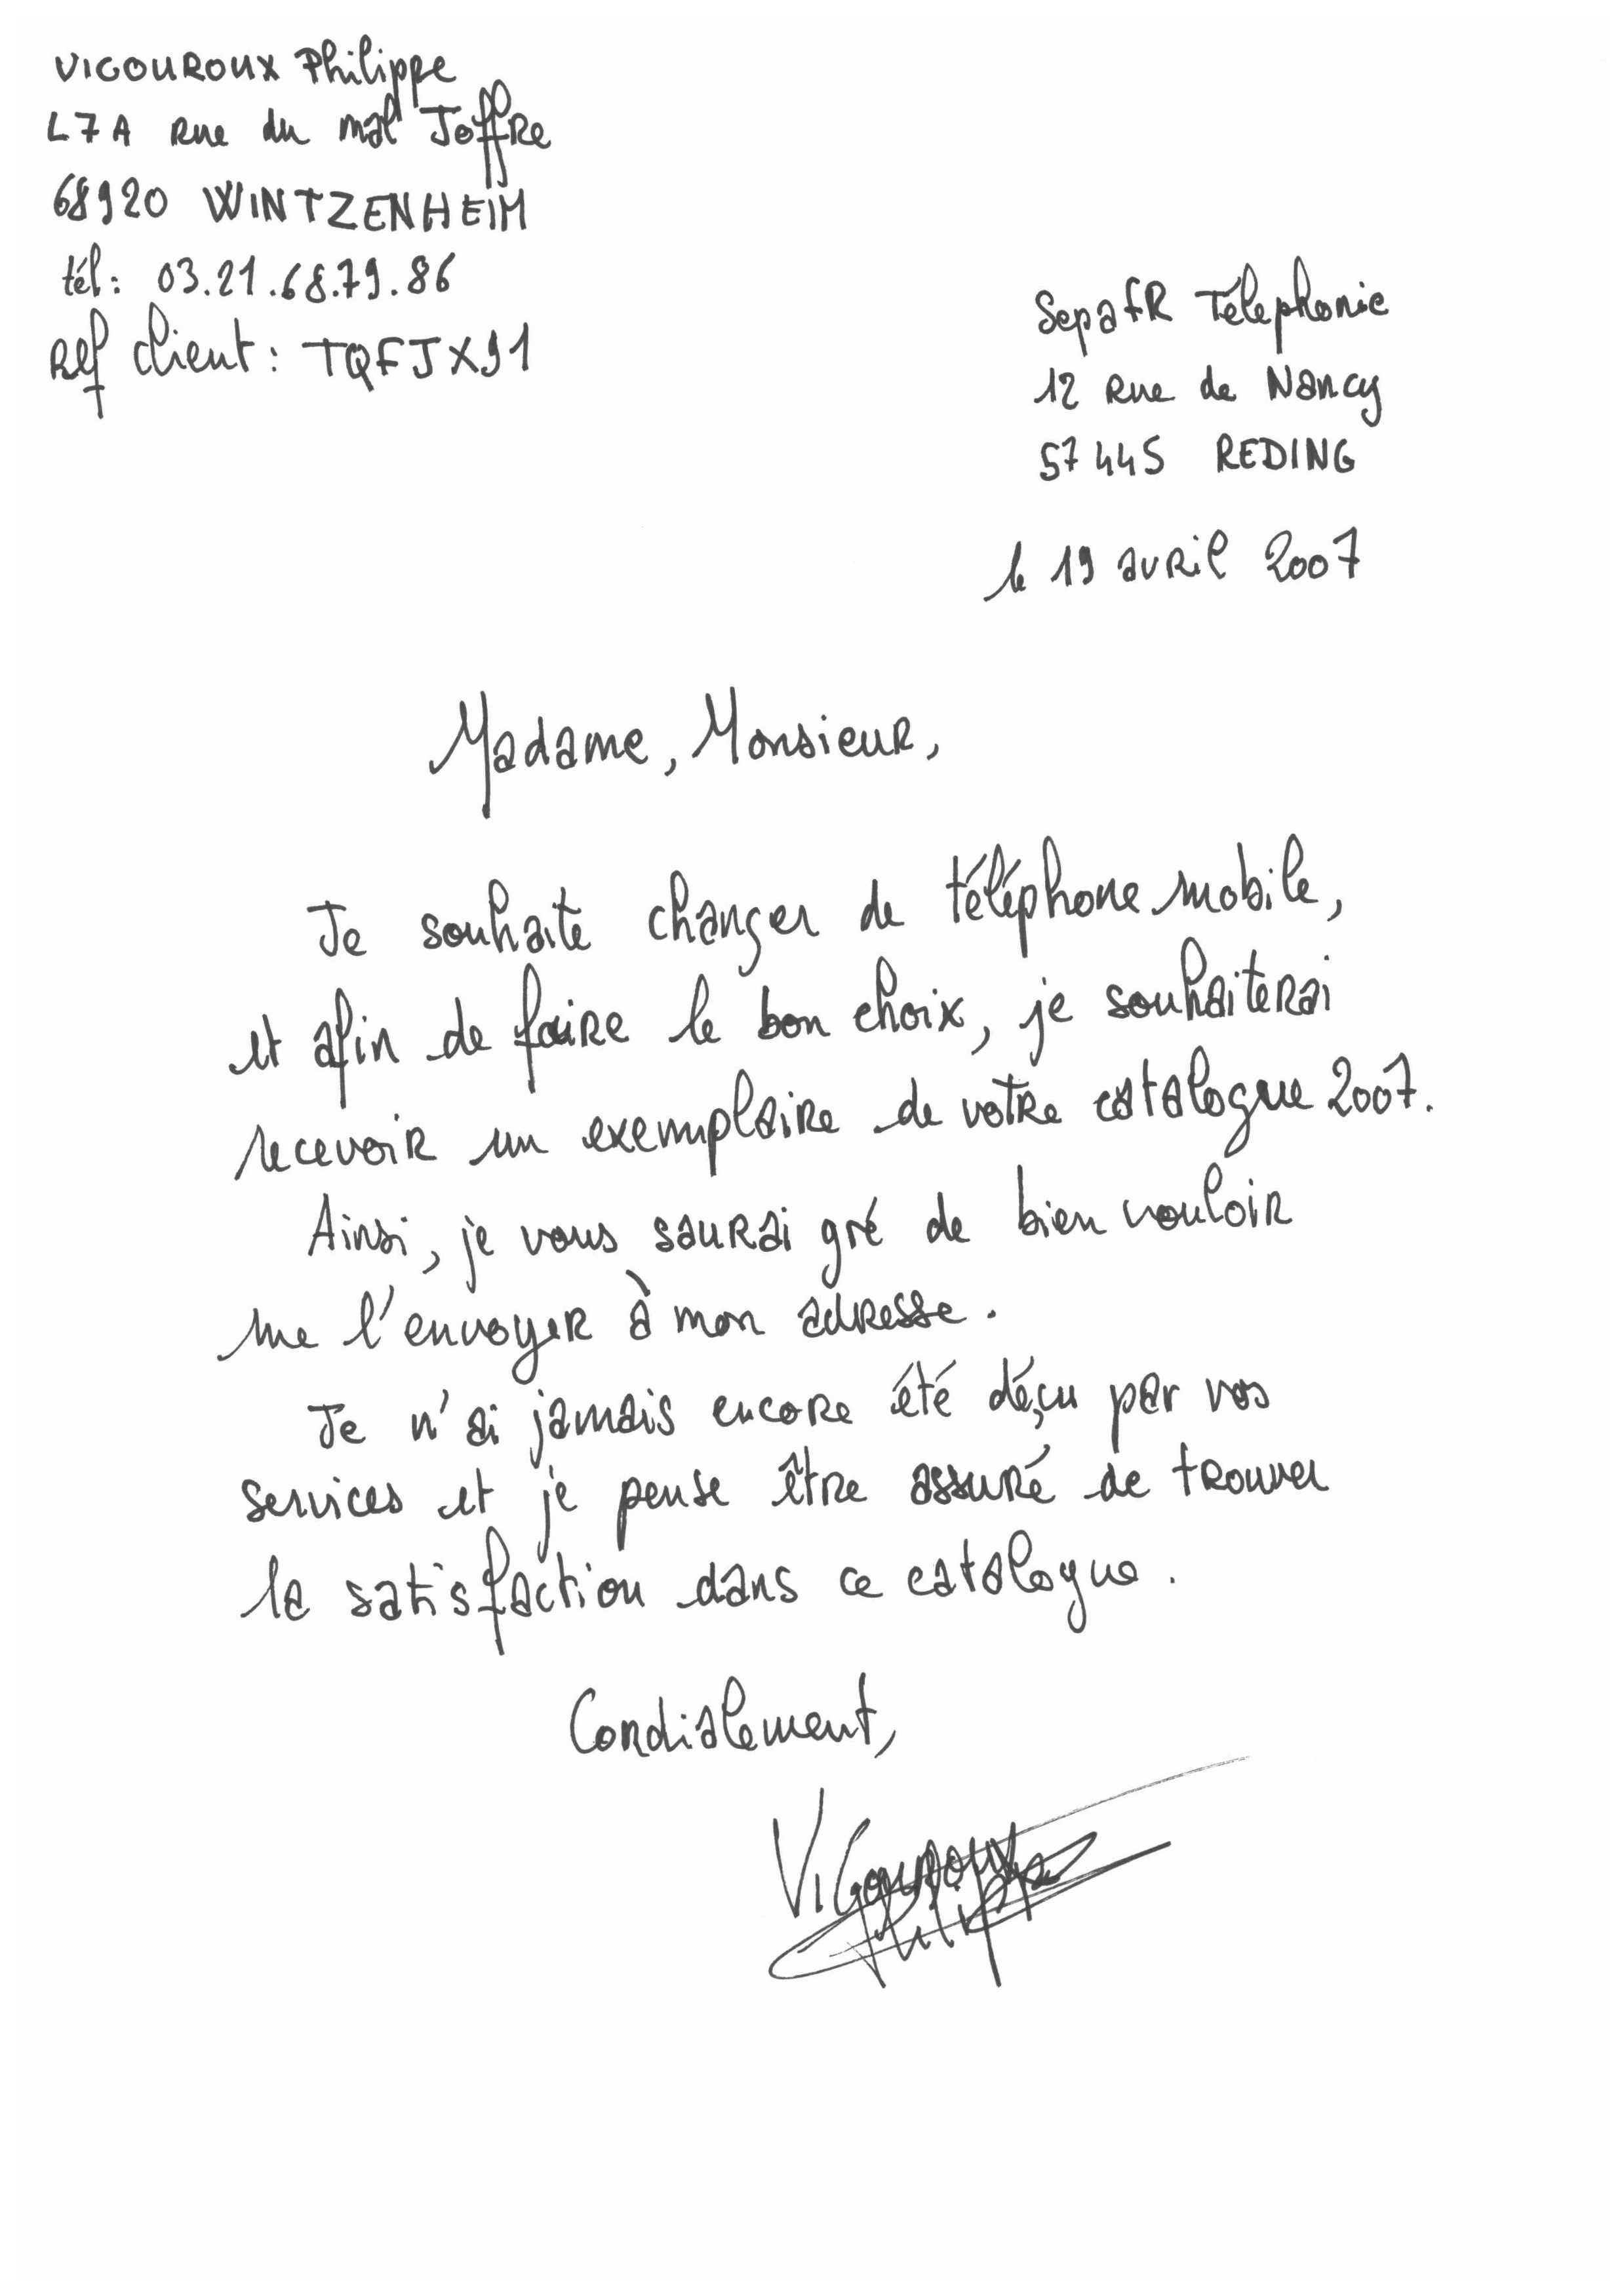 VIGOUROUX Philippe
L7A Rue du mal Joffre
68920 WINTZENHEIM
tél: 03.21.68.79.86
Ref client: TQFJX91
SepafR Téléphonie
12 Rue de Nancy
57445 REDING
le 19 avril 2007
Madame, Monsieur,
Je souhaite changer de téléphone mobile,
et afin de faire le bon choix, je souhaiterai
recevoir un exemplaire de votre catalogue 2007.
Ainsi, je vous saurai gré de bien vouloir
me l'envoyer à mon adresse.
Je n'ai jamais encore été déçu par vos
services et je pense être assuré de trouver
la satisfaction dans ce catalogue.
Cordialement,
Vigouroux
Philippe